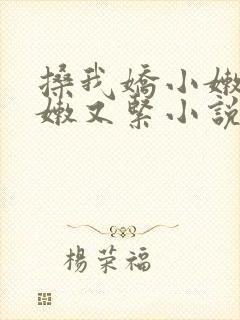 搡我嬌小嫩
嫩又緊小說
楊荣福